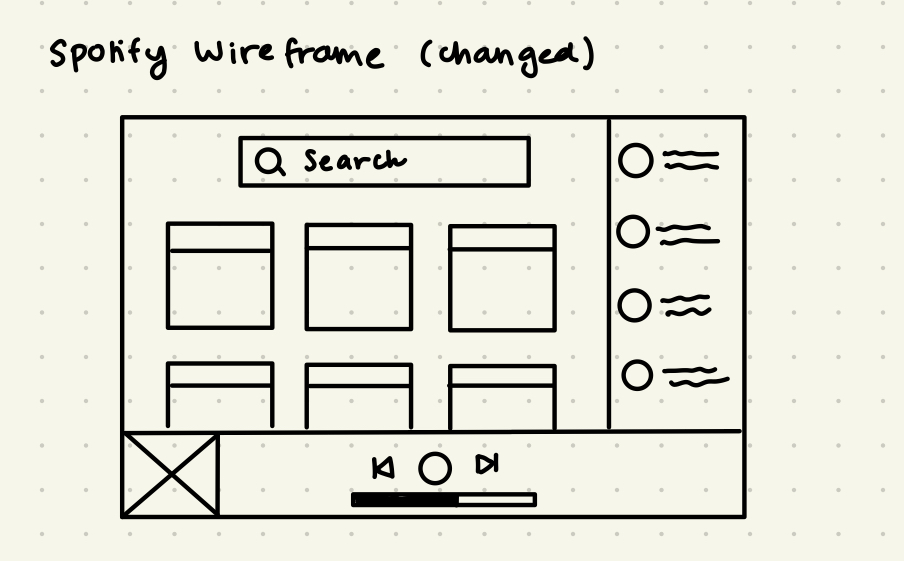 Spotify Wireframe (changed)
Search